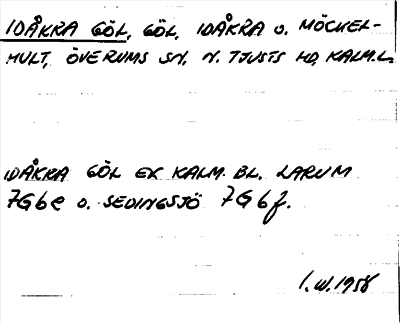 IDÅKRA GÖL, GÖL, IDÅKRA O. MÖCKEL-
HULT, ÖVERUMS SN, N. TJUSTS HD, KALM.L.
IDÅKRA GÖL EK KALM. BL. LARUM
7G6e O. SEDINGSJÖ 7G6f.
I.W. 1958